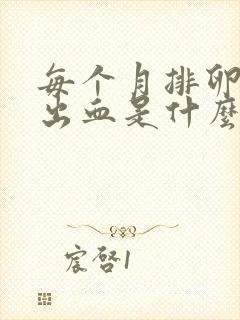 每个月排卵
出血是什麼
宸啓1